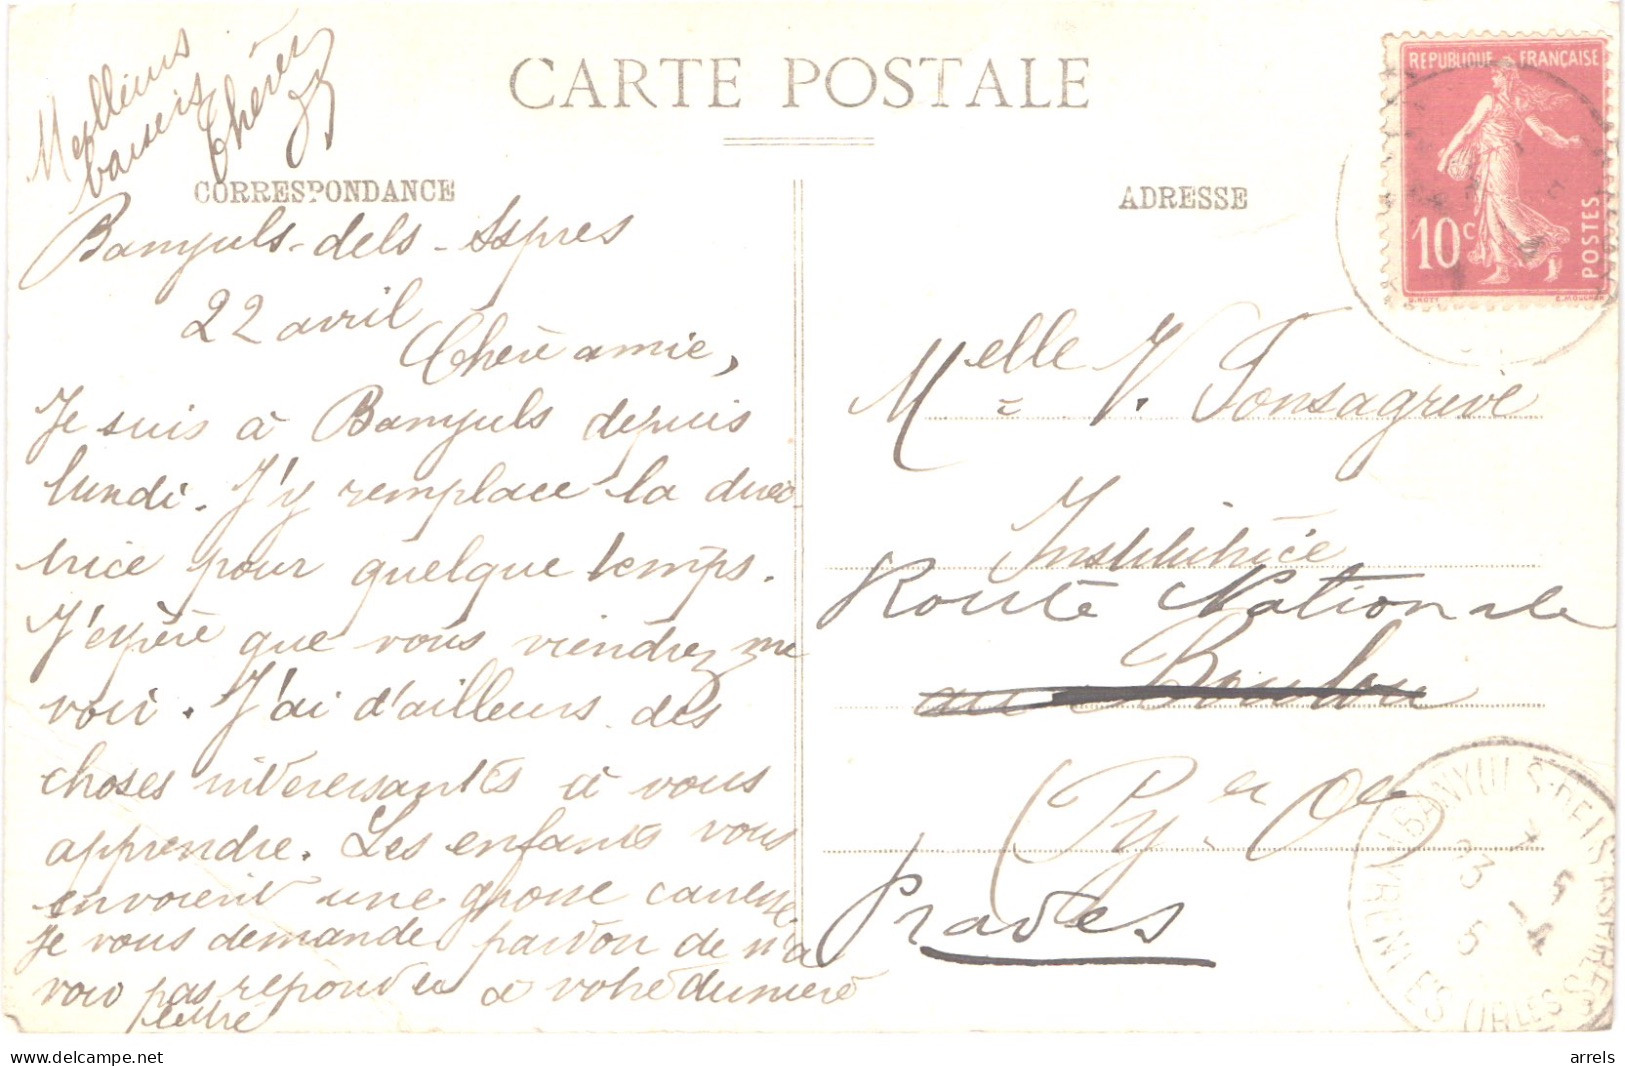 Meilleurs
baisers
Thérèse
CARTE POSTALE
CORRESPONDANCE
Banyuls-dels-Aspres
22 avril
Chère amie,
Je suis à Banyuls depuis
lundi. J'y remplace la direc-
trice pour quelque temps.
J'espère que vous viendrez me
voir. J'ai d'ailleurs des
choses intéressantes à vous
apprendre. Les enfants vous
envoient une grosse caresse
Je vous demande pardon de n'a
voir pas répondu à votre dernière
lettre
ADRESSE
REPUBLIQUE FRANÇAISE
10c
POSTES
O.ROTY E.MOUCHON
Melle V. Fonsagrive
Institutrice
Route Nationale
au Boulou
(Py-Or)
Prades
BANYULS-DELS-ASPRES
23
arrels